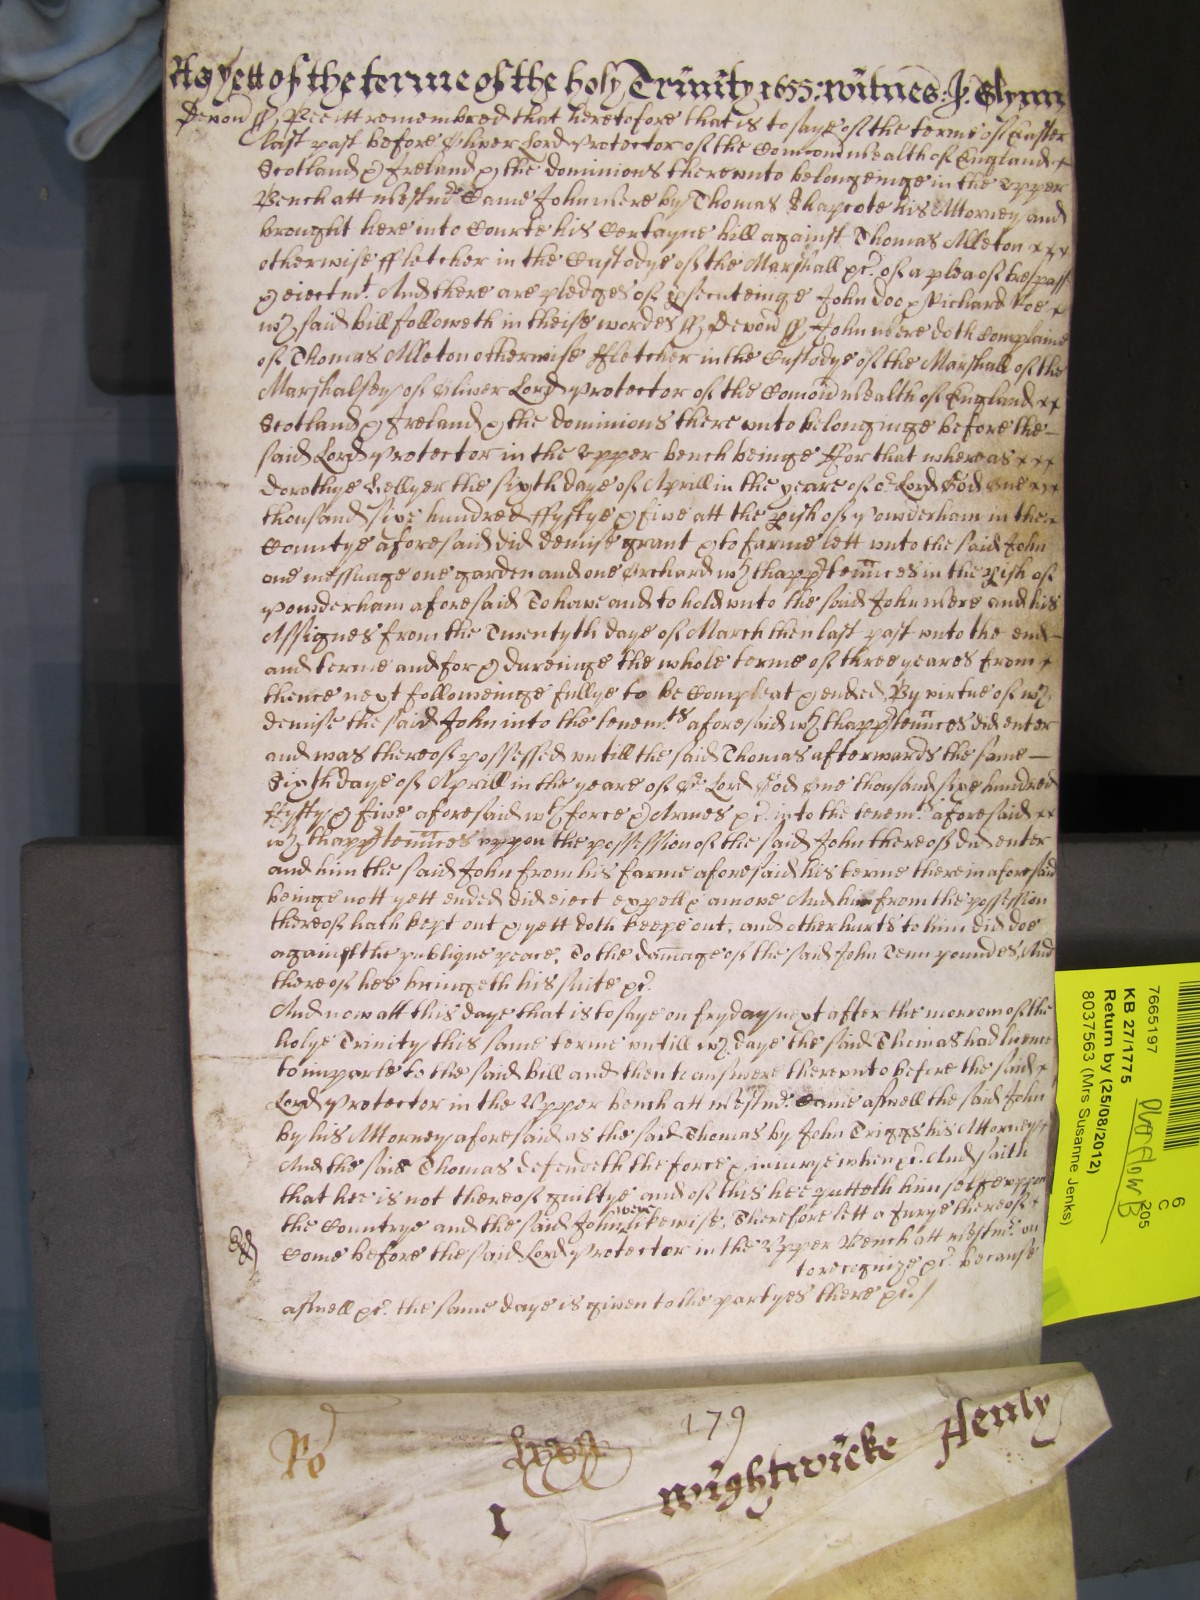 As yett of the terme of the holy Trinity 1655: witnes: J: Glynn
Devon ss Bee itt remembred that heretofore that is to saye of the terme of Easter
last past before Oliver Lord Protector of the Comonwealth of England
Scotland & Ireland & the dominions thereunto belongeinge in the Upper
Bench att Westmr Came John Were by Thomas Shapcote his Attorney and
brought here into Courte his Certayne bill against Thomas Alleton
otherwise ffletcher in the Custodye of the Marshall &c. of a plea of trespass
& eiectmt. And there are pledges of psecuteinge John Doo & Richard Roe
wch said bill followeth in theise wordes ss Devon ss John Were doth Complaine
of Thomas Alleton otherwise ffletcher in the Custodye of the Marshall of the
Marshalsey of Oliver Lord Protector of the Comonwealth of England
Scotland & Ireland & the dominions there unto belonginge before the
said Lord Protector in the Upper bench beinge ffor that whereas
Dorothye Hellyer the sixth daye of Aprill in the yeare of or Lord God One
thousand sixe hundred ffyftye & five att the pish of Powderham in the
Countye aforesaid did demise grant & to farme lett unto the said John
one messuage one garden and one Orchard wth thapptennces in the pish of
Powderham aforesaid To have and to hold unto the said John Were and his
Assignes from the Twentyth daye of March then last past unto the end
and terme and for & dureinge the whole terme of three yeares from
thence next followeinge fullye to be Compleat & ended, By virtue of wch
demise the said John into the tenemts aforesaid wth thapptennces did enter
and was thereof possessed untill the said Thomas afterwards the same
Sixth daye of Aprill in the yeare of or Lord God One thousand sixe hundred
ffyfty & five aforesaid wth force & Armes &c. into the tenemts aforesaid
wth thapptennces uppon the possession of the said John thereof did enter
and him the said John from his farme aforesaid his terme therein aforesaid
beinge nott yett ended did eiect expell & amove And him from the possession
thereof hath kept out & yett doth keepe out, and other hurts to him did doe
against the publique peace, To the damage of the said John Tenn poundes, And
thereof hee bringeth his suite &c.
And now att this daye that is to saye on fryday next after the morrow of the
holye Trinity this same terme untill wch daye the said Thomas had licence
to imparle to the said bill and then to answere thereunto before the said
Lord Protector in the Upper bench att Westmr. Came aswell the said John
by his Attorney aforesaid as the said Thomas by John Triggs his Attorney
And the said Thomas defendeth the force & iniurye when &c. And saith
that hee is not thereof guiltye and of this hee putteth him selfe uppon
the Countrye and the said John Were likewise. Therefore lett a Jurye thereof
Come before the said Lord Protector in the Upper Bench att Westmr. on
to recognize &c. because
aswell &c. the same daye is given to the partyes there &c. /
Ro
179
I
wightwicke Henly
7665197
KB 27/1775
Return by (25/08/2012)
8037563 (Mrs Susanne Jenks)
Overflow B
6
C
205